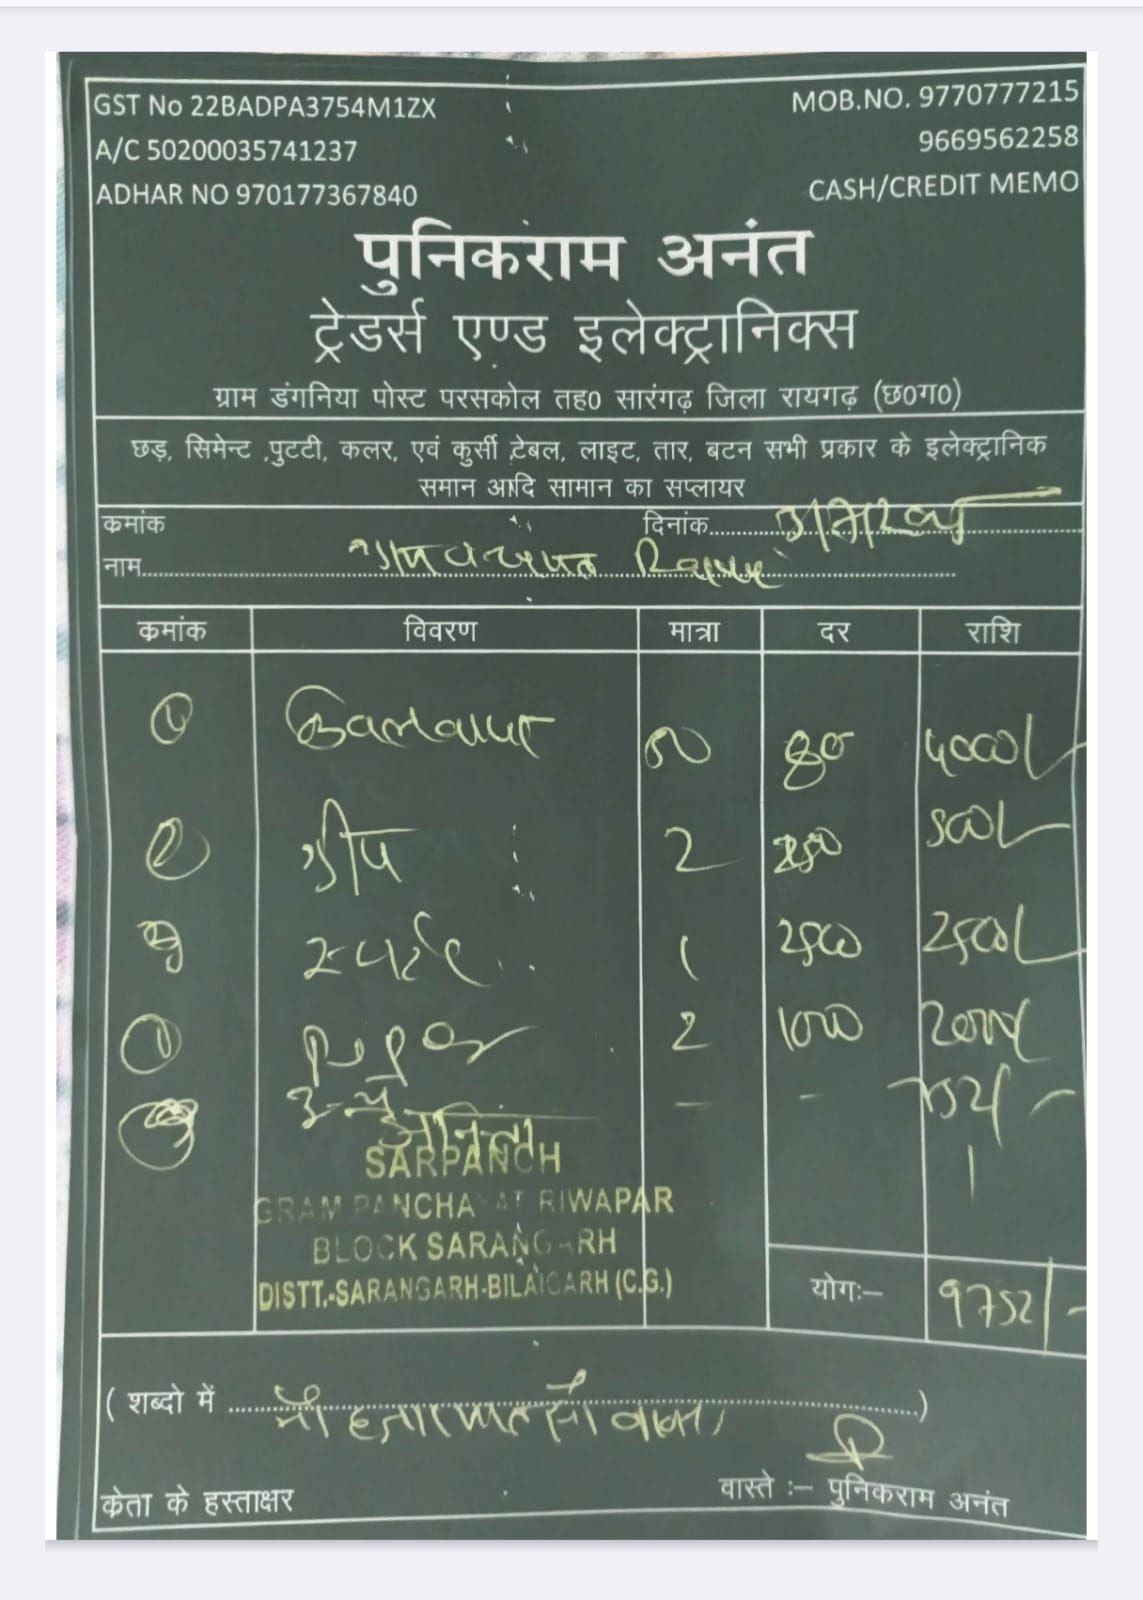 GST No 22BADPA3754M1ZX
MOB.NO. 9770777215
A/C 50200035741237
9669562258
ADHAR NO 970177367840
CASH/CREDIT MEMO
पुनिकराम अनंत
ट्रेडर्स एण्ड इलेक्ट्रानिक्स
ग्राम डंगनिया पोस्ट परसकोल तह0 सारंगढ़ जिला रायगढ़ (छ0ग0)
छड़, सिमेन्ट ,पुटटी, कलर, एवं कुर्सी टेबल, लाइट, तार, बटन सभी प्रकार के इलेक्ट्रानिक
समान आदि सामान का सप्लायर
कमांक दिनांक
नाम
कमांक विवरण मात्रा दर राशि
50 80 4000/-
2 250 500/-
1 2500 2500/-
2 1000
- -
SARPANCH
GRAM PANCHAYAT RIWAPAR
BLOCK SARANGARH
DISTT.-SARANGARH-BILAIGARH (C.G.)
योगः– 9752/-
( शब्दो में नौ हजार सात सौ बावन )
केता के हस्ताक्षर वास्ते :– पुनिकराम अनंत